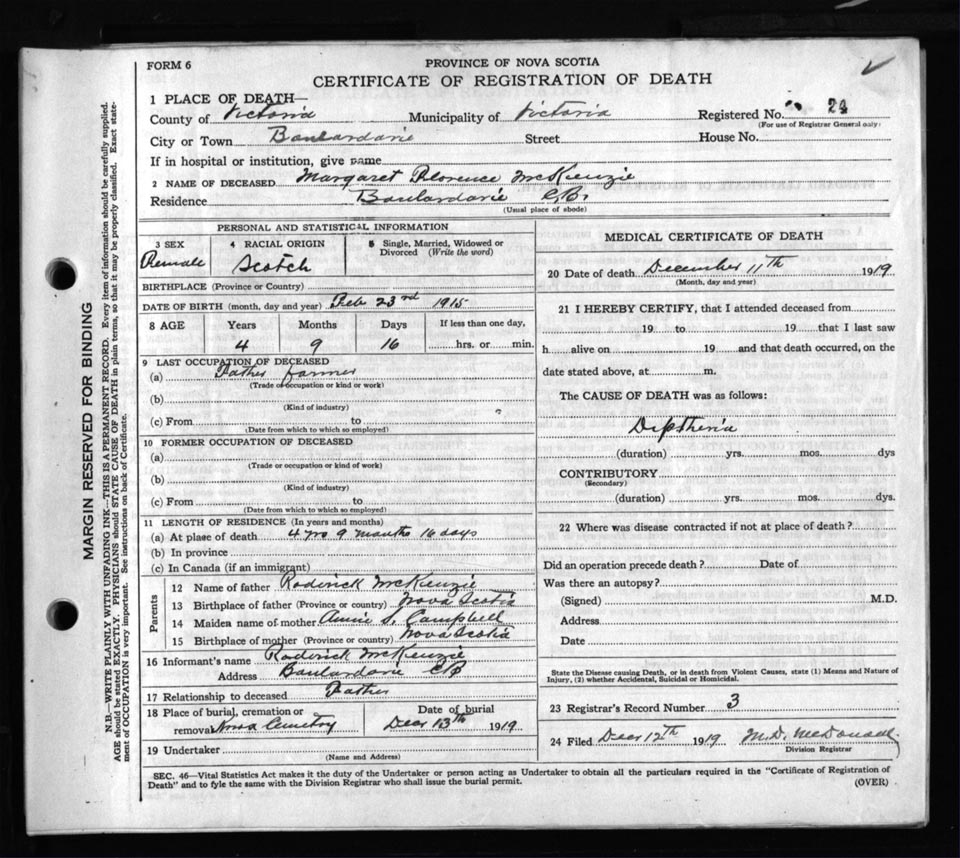 FORM 6
PROVINCE OF NOVA SCOTIA
CERTIFICATE OF REGISTRATION OF DEATH
1 PLACE OF DEATH—
County of Victoria Municipality of Victoria Registered No. 24
(For use of Registrar General only)
City or Town Boulardarie Street House No.
If in hospital or institution, give name
2 NAME OF DECEASED Margaret Florence McKenzie
Residence Boulardarie C.B.
(Usual place of abode)
PERSONAL AND STATISTICAL INFORMATION
3 SEX 4 RACIAL ORIGIN 5 Single, Married, Widowed or
Divorced (Write the word)
Female Scotch
BIRTHPLACE (Province or Country)
DATE OF BIRTH (month, day and year) Feb 23rd 1915
8 AGE Years Months Days If less than one day,
4 9 16 hrs. or min.
9 LAST OCCUPATION OF DECEASED
(a) Father farmer
(Trade or occupation or kind or work)
(b)
(Kind of industry)
(c) From to
(Date from which to which so employed)
10 FORMER OCCUPATION OF DECEASED
(a)
(Trade or occupation or kind of work)
(b)
(Kind of industry)
(c) From to
(Date from which to which so employed)
11 LENGTH OF RESIDENCE (In years and months)
(a) At place of death 4 yrs 9 months 16 days
(b) In province
(c) In Canada (if an immigrant)
Parents
12 Name of father Roderick McKenzie
13 Birthplace of father (Province or country) Nova Scotia
14 Maiden name of mother Annie S. Campbell
15 Birthplace of mother (Province or country) Nova Scotia
16 Informant's name Roderick McKenzie
Address Boulardarie CB
17 Relationship to deceased Father
18 Place of burial, cremation or Date of burial
removal Cemetry Decr 13th 1919
19 Undertaker
(Name and Address)
MEDICAL CERTIFICATE OF DEATH
20 Date of death December 11th 1919
(Month, day and year)
21 I HEREBY CERTIFY, that I attended deceased from
19 to 19 that I last saw
h alive on 19 and that death occurred, on the
date stated above, at m.
The CAUSE OF DEATH was as follows:
Diptheria
(duration) yrs. mos. dys
CONTRIBUTORY
(Secondary)
(duration) yrs. mos. dys.
22 Where was disease contracted if not at place of death?
Did an operation precede death? Date of
Was there an autopsy?
(Signed) M.D.
Address
Date
State the Disease causing Death, or in death from Violent Causes, state (1) Means and Nature of
Injury, (2) whether Accidental, Suicidal or Homicidal.
23 Registrar's Record Number 3
24 Filed Decr 12th 1919 M.D. McDonald
Division Registrar
SEC. 46—Vital Statistics Act makes it the duty of the Undertaker or person acting as Undertaker to obtain all the particulars required in the "Certificate of Registration of
Death" and to fyle the same with the Division Registrar who shall issue the burial permit. (OVER)
MARGIN RESERVED FOR BINDING
N.B.—WRITE PLAINLY WITH UNFADING INK—THIS IS A PERMANENT RECORD. Every item of information should be carefully supplied.
AGE should be stated EXACTLY. PHYSICIANS should STATE CAUSE OF DEATH in plain terms, so that it may be properly classified. Exact state-
ment of OCCUPATION is very important. See instructions on back of Certificate.